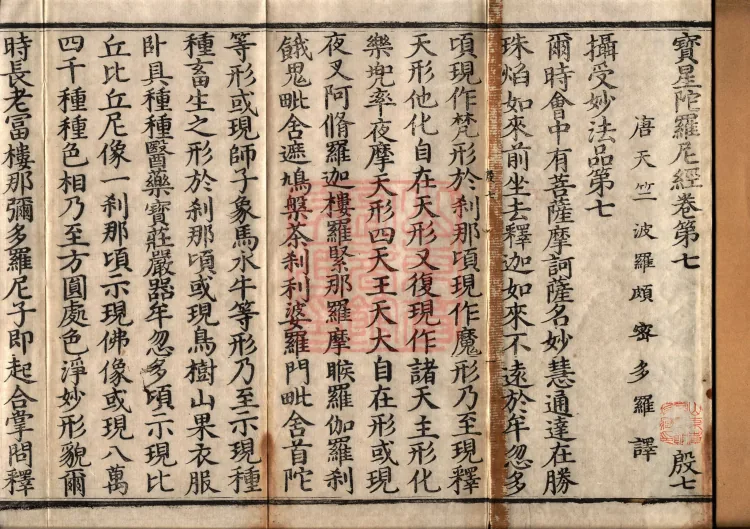 寶星陀羅尼經卷第七 殷七
唐天竺波羅頗蜜多羅譯
攝受妙法品第七
爾時會中有菩薩摩訶薩名妙慧通達在勝
珠焰如來前坐去釋迦如來不遠於牟忽多
頃現作梵形於刹那頃現作魔形乃至現釋
天形他化自在天形又復現作諸天主形化
樂兜率夜摩天形四天王天大自在形或現
夜叉阿脩羅迦樓羅緊那羅摩睺羅伽羅刹
餓鬼毗舍遮鳩槃茶刹利婆羅門毗舍首陀
等形或現師子象馬水牛等形乃至示現種
種畜生之形於刹那頃或現鳥樹山果衣服
卧具種種醫藥寶莊嚴器牟忽多頃示現比
丘比丘尼像一刹那頃示現佛像或現八萬
四千種種色相乃至方圓處色淨妙形貌爾
時長老富樓那彌多羅尼子即起合掌問釋